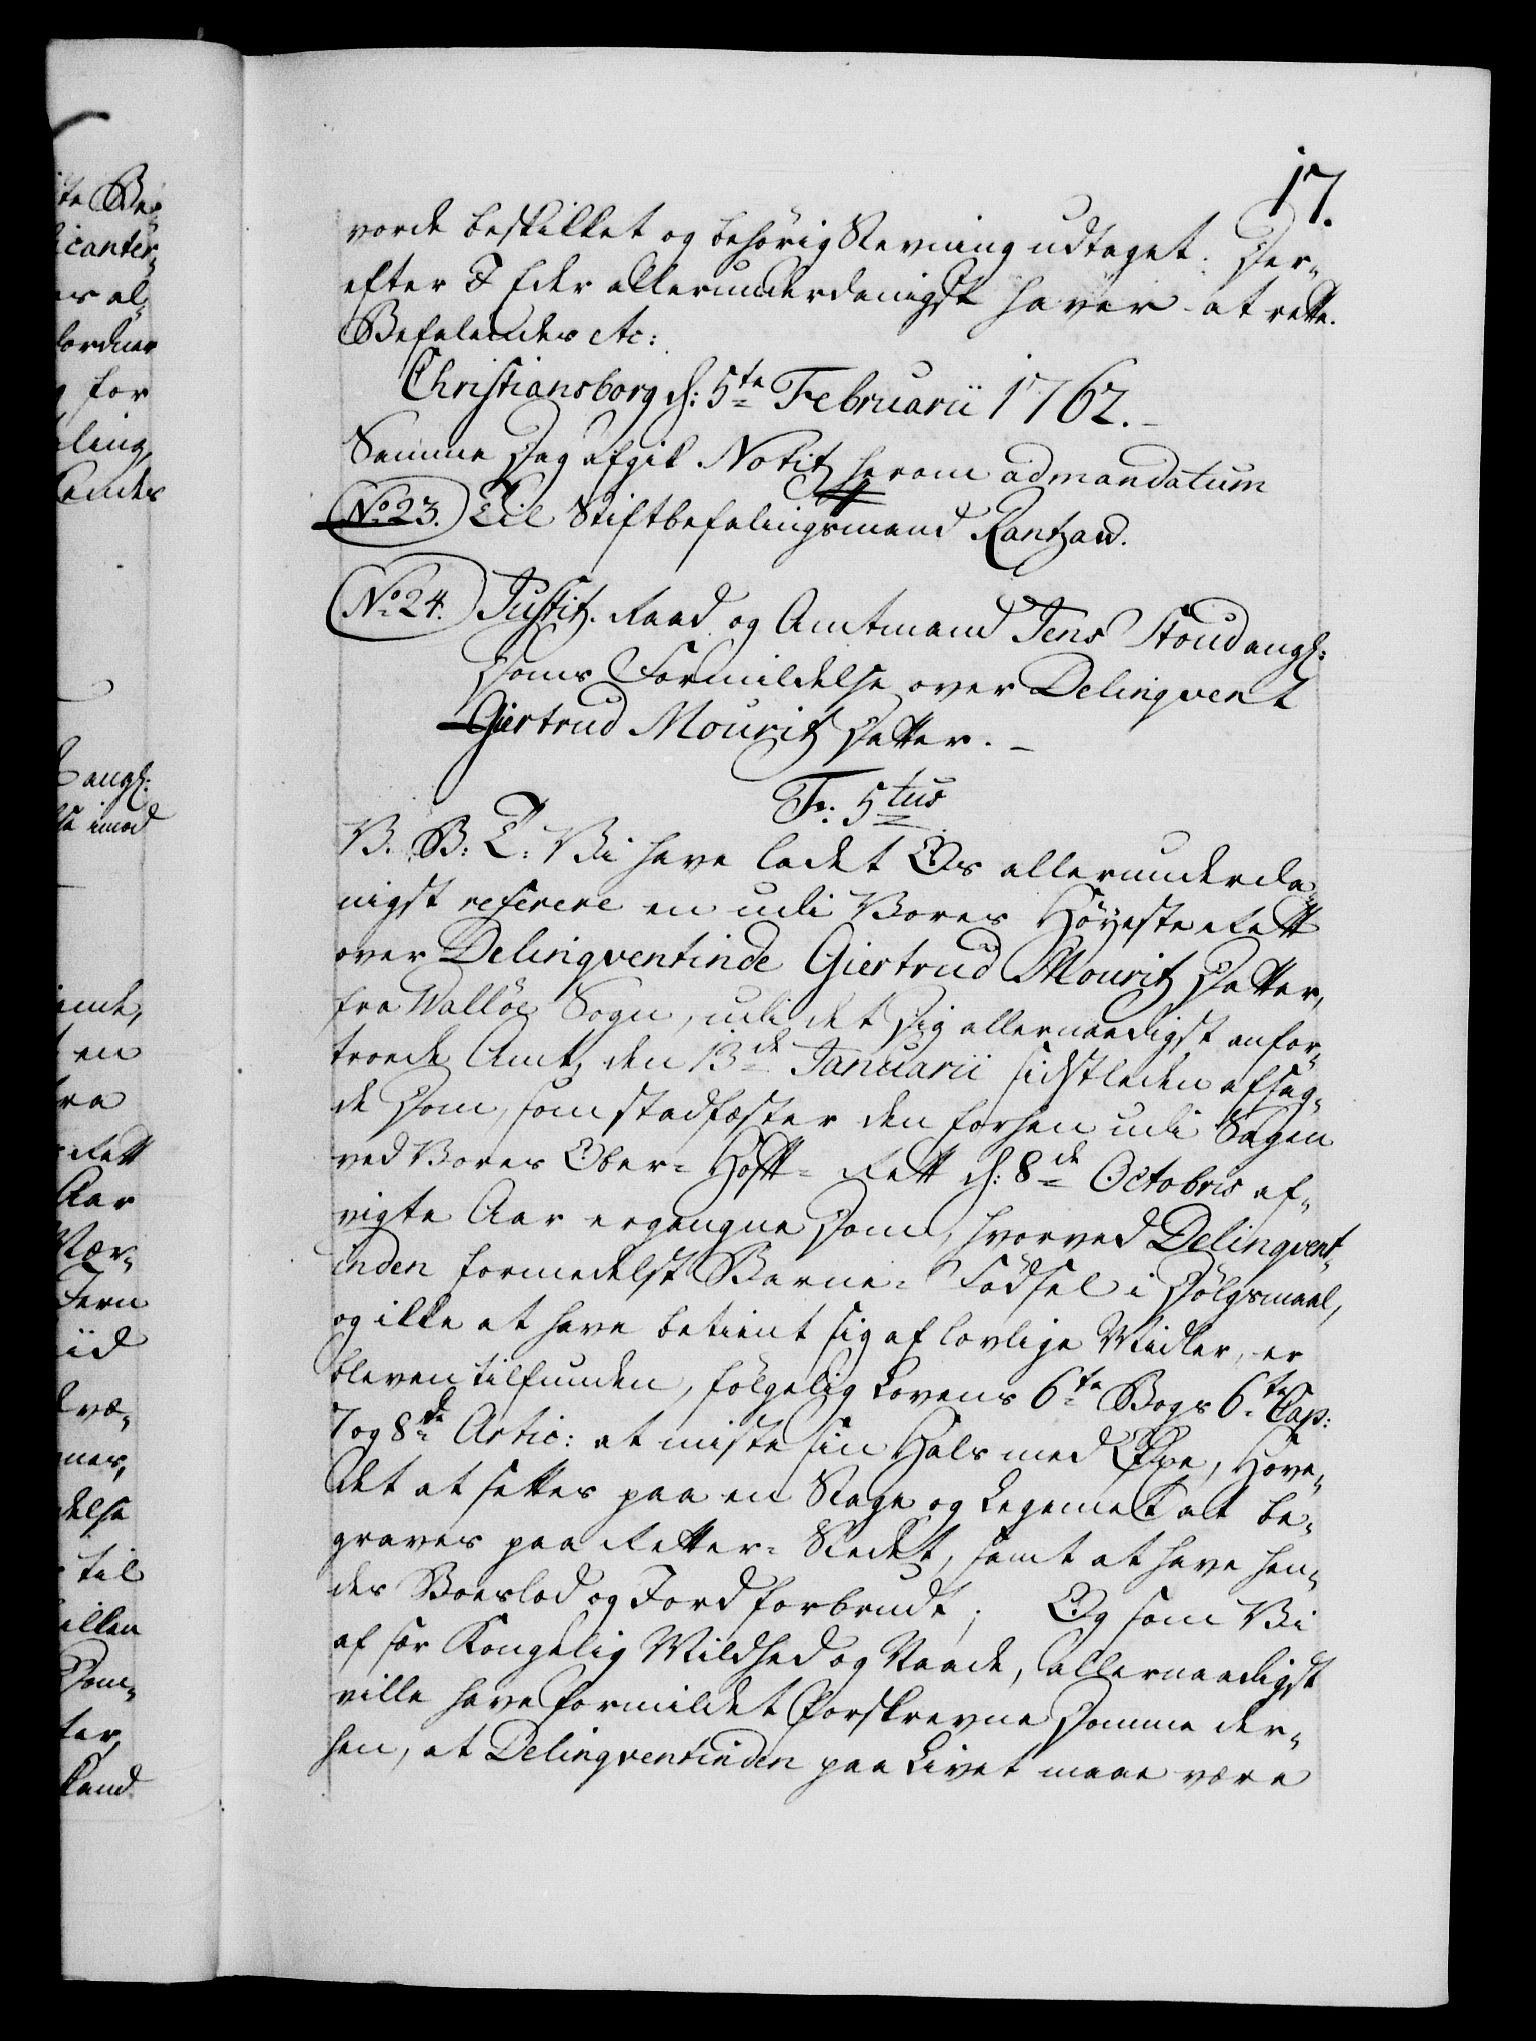 17.
vorde beskikket og behörig Stevning udtaget. Der-
efter I Eder allerunderdanigst haver at rette.
Befalendes etc:
Christiansborg d: 5te Februarii 1762.
Samme Dag afgik Notitz herom ad mandatum
No 23. Til Stiftbefalingsmand Rantzau.
No 24. Justitz-Raad og Amtmand Jens Stoud angl:
Doms Formildelse over Delinqvent
Giertrud Mouritz Datter.
Fr. 5tus
V. B: T: Vi have ladet Os allerunderda-
nigst referere en udi Vores Höyeste Rett
over Delinqventinde Giertrud Mouritz Datter,
fra Walløe Sogn, udi det Dig allernaadigst anfor-
troede Amt, den 13de Januarii sidstleden afsag-
de Dom, som stadfæster den forhen udi Sagen
ved Vores Ober-Hoff-Rett d: 8de Octobris af-
vigte Aar ergangne Dom, hvorved Delinqvent-
inden formedelst Barne-Födsel i Dölgsmaal,
og ikke at have betient sig af lovlige Midler, er
bleven tilfunden, fölgelig Lovens 6te Bogs 6te Cap:
7 og 8de Artic: at miste sin Hals med Öxe, Hove-
det at settes paa en Stage og Legemet at be-
graves paa Retter-Stedet, samt at have hen-
des Boeslod og Jord forbrudt; Og som Vi
af sær Kongelig Mildhed og Naade, allernaadigst
ville have formildet forskrevne Domme der-
hen, at Delinqventinden paa Livet maae være
te Be-
icanter,
es al-
fordner
for
ling,
angl:
imod
en
fra
Rett
Aar
Jern
til
Dom-
ter,